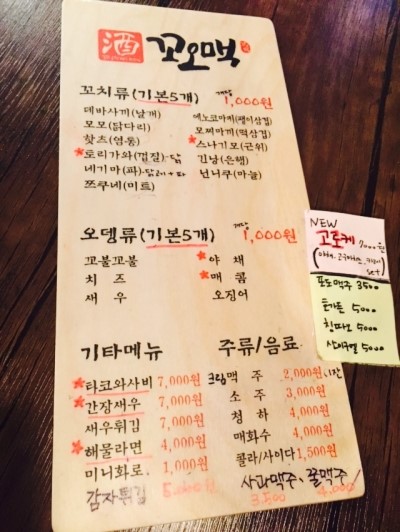 酒 꼬오맥
꼬치류(기본5개) 개당 1,000원
데바사끼(날개) 에노코마끼(팽이삼겹)
모모(닭다리) 모찌마끼(떡삼겹)
핫츠(염통) 스나기모(근위)
토리가와(껍질) 긴낭(은행)
네기마(파) 닌니쿠(마늘)
쯔쿠네(미트)
오뎅류(기본5개) 개당 1,000원
꼬불꼬불 야채
치즈 매콤
새우 오징어
기타메뉴 주류/음료
타코와사비 7,000원 크림맥주 2,000원
간장새우 7,000원 소주 3,000원
새우튀김 7,000원 청하 4,000원
해물라면 4,000원 매화수 4,000원
미니화로 1,000원 콜라/사이다 1,500원
감자튀김 5,000원 사과맥주 3,500 꿀맥주 4,000
NEW
고로케 7000원
set
포도맥주 3500
5,000
칭따오 5,000
5,000